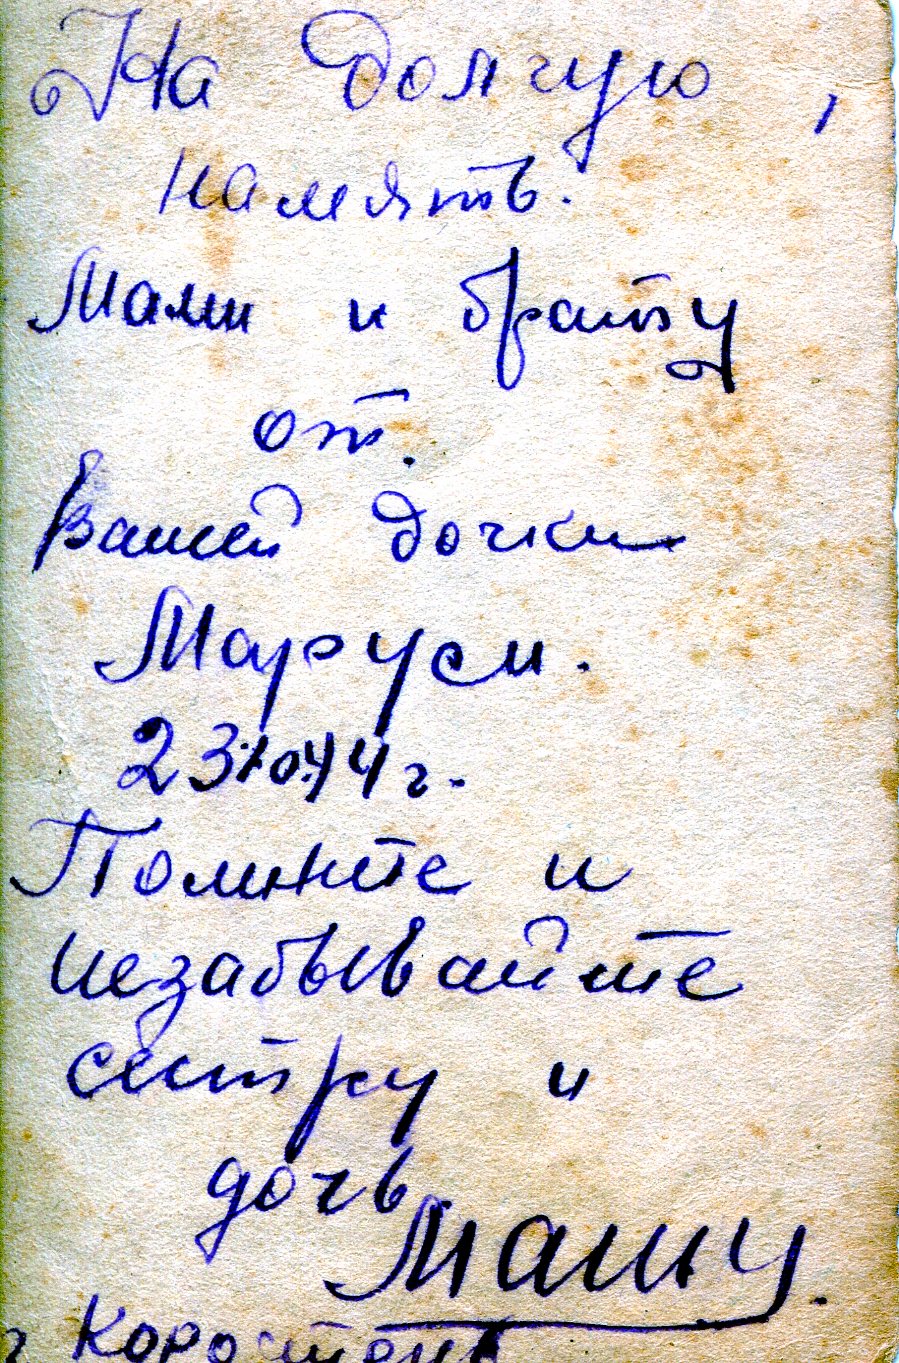 На долгую,
память.
Мами и братцу
от.
Вашей дочки
Маруси.
23/X 44 г.
Помните и
незабывайте
сестру и
дочь
Машу.
г Коростень